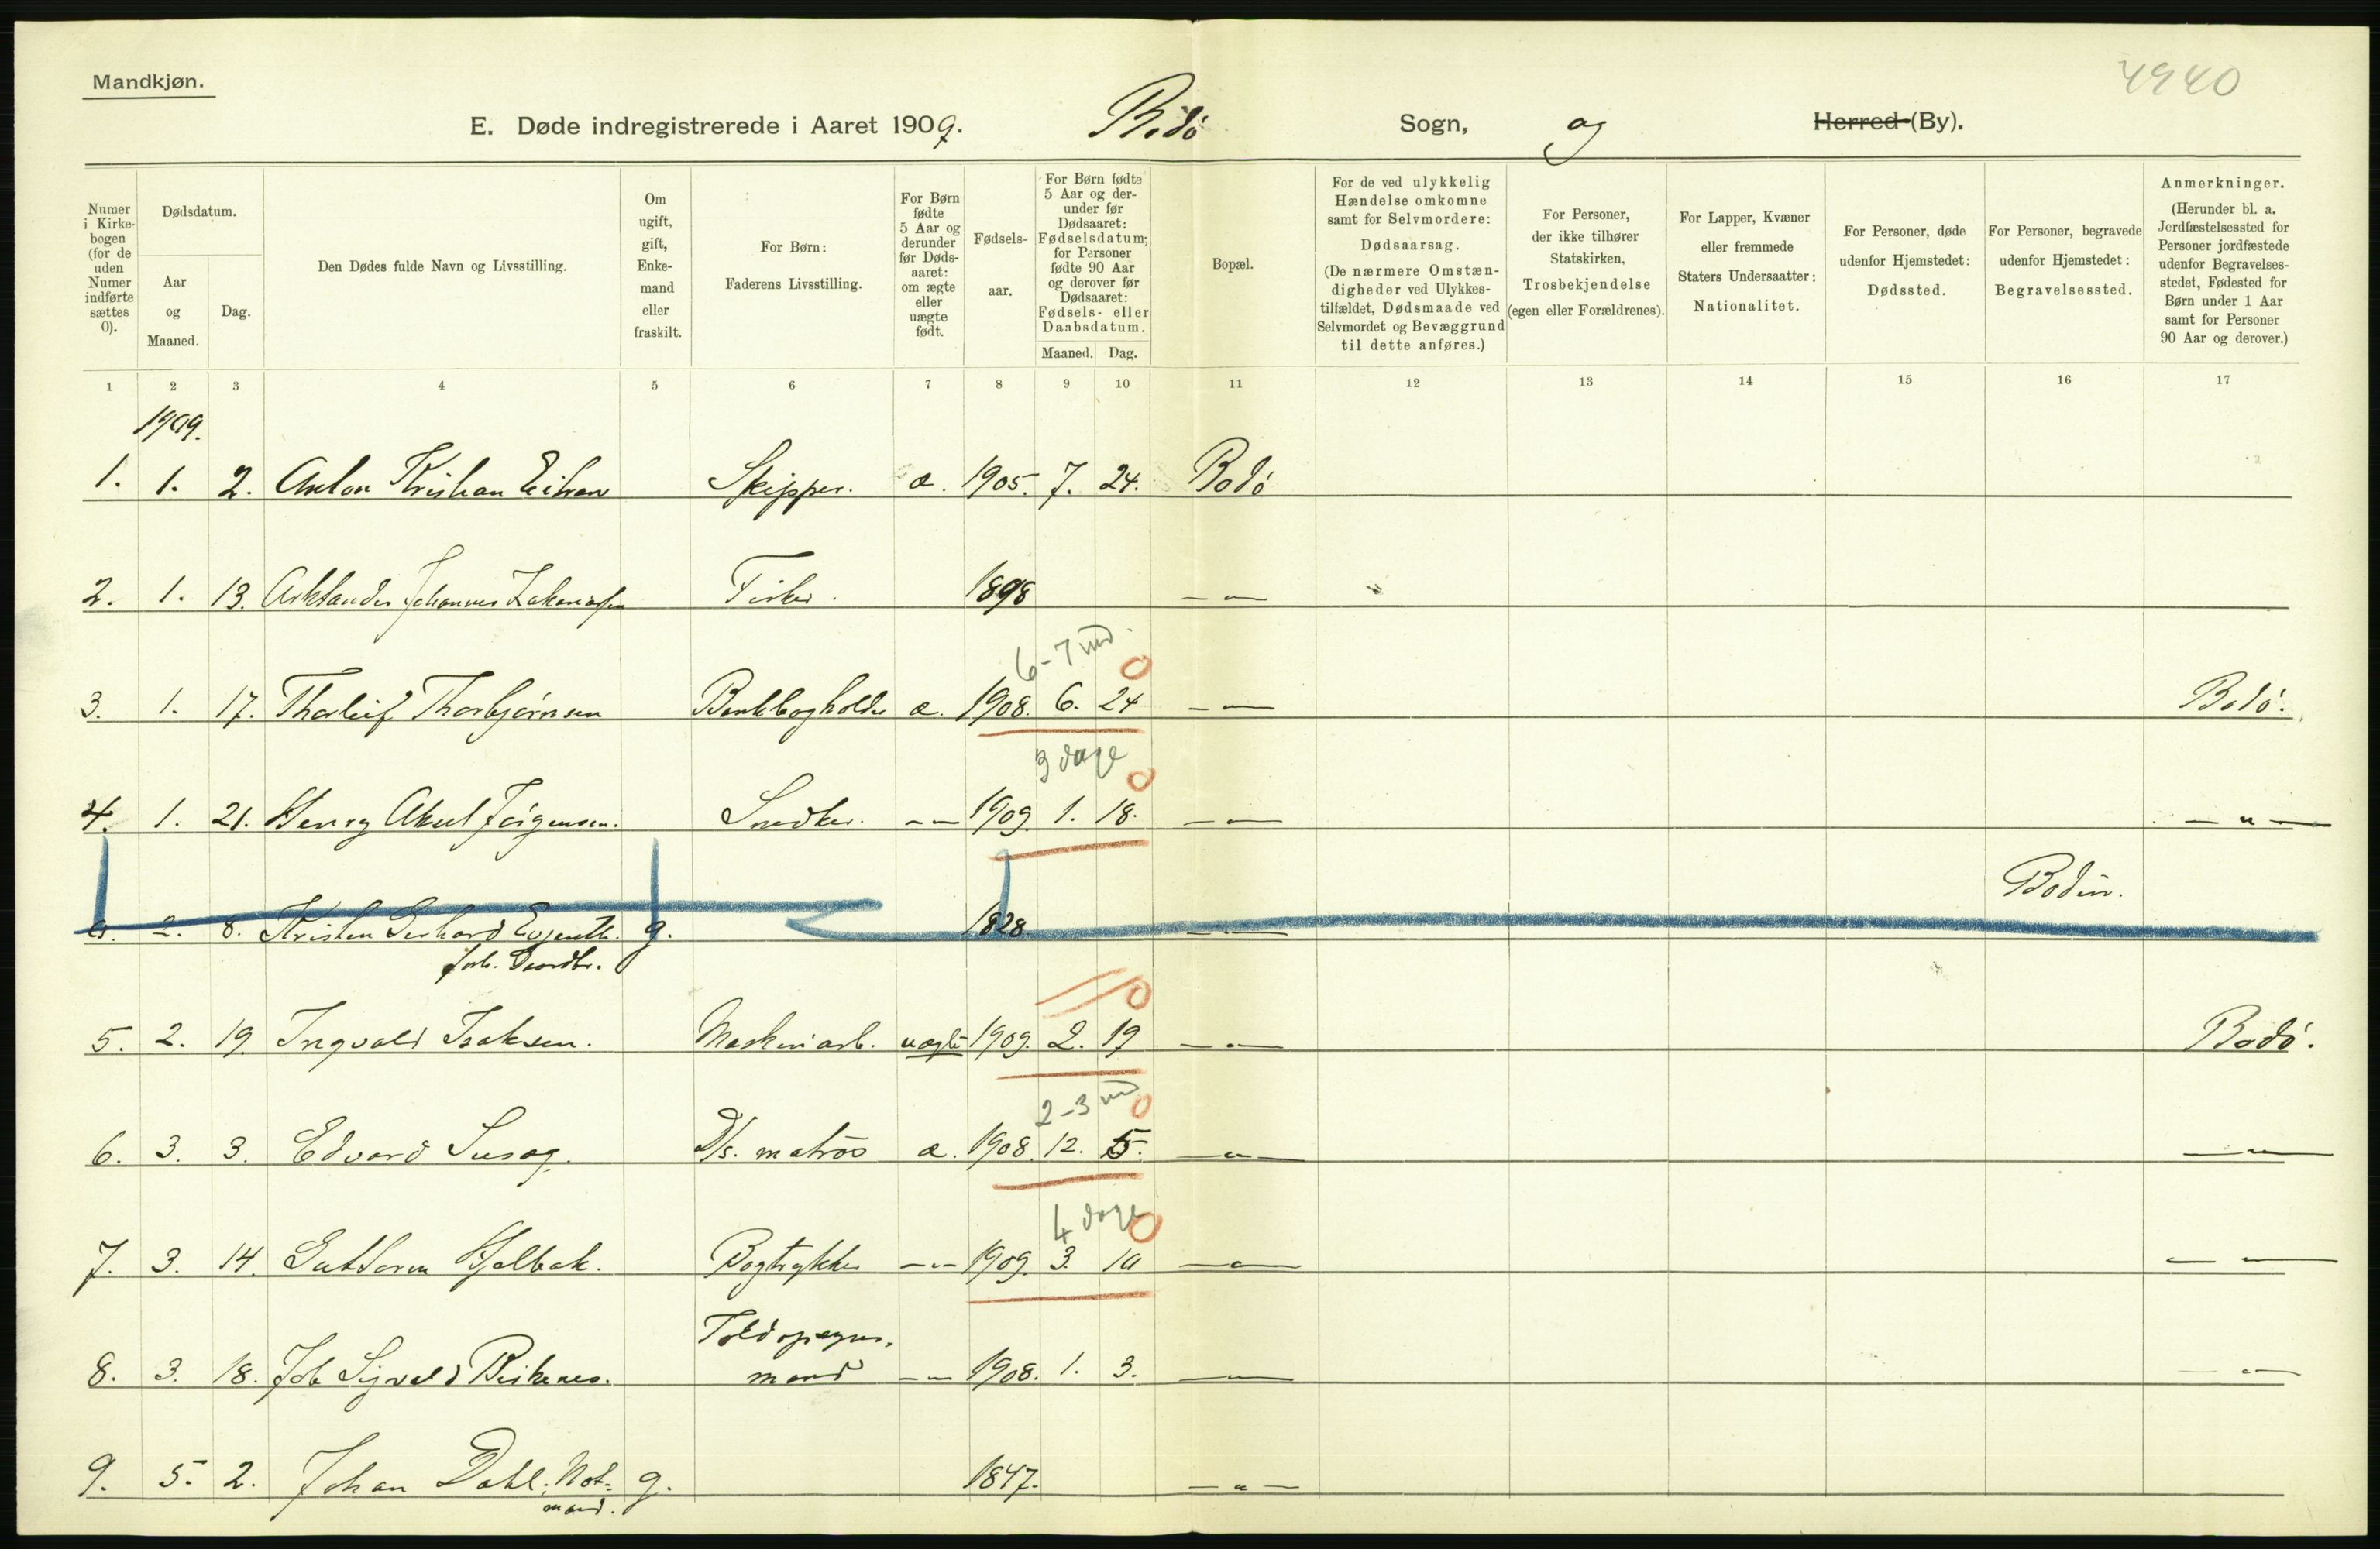 Mandkjøn.
4940
E. Døde indregistrerede i Aaret 1909. Bodö Sogn, og Herred (By).
Numer i Kirkebogen (for de uden Numer indførte sættes 0).
Dødsdatum.
Aar og Maaned.
Dag.
Den Dødes fulde Navn og Livsstilling.
Om ugift, gift, Enkemand eller fraskilt.
For Børn: Faderens Livsstilling.
For Børn fødte 5 Aar og derunder før Dødsaaret: om ægte eller uægte født.
Fødselsaar.
For Børn fødte 5 Aar og derunder før Dødsaaret: Fødselsdatum; for Personer fødte 90 Aar og derover før Dødsaaret: Fødsels- eller Daabsdatum.
Maaned. Dag.
Bopæl.
For de ved ulykkelig Hændelse omkomne samt for Selvmordere: Dødsaarsag. (De nærmere Omstændigheder ved Ulykkestilfældet, Dødsmaade ved Selvmordet og Bevæggrund til dette anføres.)
For Personer, der ikke tilhører Statskirken, Trosbekjendelse (egen eller Forældrenes).
For Lapper, Kvæner eller fremmede Staters Undersaatter: Nationalitet.
For Personer, døde udenfor Hjemstedet: Dødssted.
For Personer, begravede udenfor Hjemstedet: Begravelsessted.
Anmerkninger. (Herunder bl. a. Jordfæstelsessted for Personer jordfæstede udenfor Begravelsesstedet, Fødested for Børn under 1 Aar samt for Personer 90 Aar og derover.)
1 2 3 4 5 6 7 8 9 10 11 12 13 14 15 16 17
1909.
1. 1. 2. Anton Kristian Skipper. æ. 1905. 7. 24. Bodö
2. 1. 13. Johannes Zakariassen Fisker. 1898 — " —
6-7 md. 0
3. 1. 17. Thorleif Thorbjörnsen Bankbogholder æ. 1908. 6. 24 — " — Bodö.
3 dage 0
4. 1. 21. Henry Aksel Jörgensen. Snedker. — " — 1909. 1. 18. — " — — " —
Bodin.
2. 8. Kristen Gerhard g. 1828 — " —
0
5. 2. 19. Ingvald Isaksen. Maskinarb. uægte 1909. 2. 19 — " — Bodö.
2-3 md 0
6. 3. 3. Edvard Susag. D/s. matros æ. 1908. 12. 15. — " — — " —
4 dage 0
7. 3. 14. Guttorm Hjelbak. Bogtrykker — " — 1909. 3. 10 — " — — " —
Toldopsyns-
8. 3. 18. Job Sigvald mand — " — 1908. 1. 3. — " — — " —
9. 5. 2. Johan Dahl, Not- g. 1847. — " —
mand.